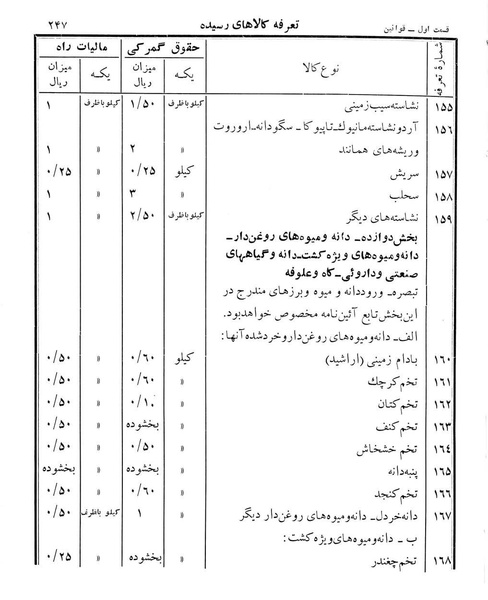 قسمت اول ـ قوانین تعرفه کالاهای رسیده ۲۴۷
شمارهٔ تعرفه نوع کالا حقوق گمرکی مالیات راه
یکه میزان ریال یکه میزان ریال
۱۵۵ نشاسته سیب زمینی کیلو باظرف ۱/۵۰ کیلو باظرف ۱
۱۵۶ آرد و نشاسته مانیوك ـ تاپیوکا ـ سگودانه ـ اروروت
وریشه‌های همانند » ۲ » ۱
۱۵۷ سریش کیلو ۰/۲۵ » ۰/۲۵
۱۵۸ سحلب » ۳ » ۱
۱۵۹ نشاسته‌های دیگر کیلو باظرف ۲/۵۰ » ۱
بخش دوازده ـ دانه ومیوه‌های روغن‌دار ـ
دانه ومیوه‌های ویژه کشت ـ دانه و گیاههای
صنعتی وداروئی ـ کاه وعلوفه
تبصره ـ ورود دانه و میوه وبرزهای مندرج در
این بخش تابع آئین‌نامه مخصوص خواهد بود.
الف ـ دانه ومیوه‌های روغن‌دار وخرد شده آنها:
۱۶۰ بادام زمینی (اراشید) کیلو ۰/۶۰ » ۰/۵۰
۱۶۱ تخم کرچك » ۰/۶۰ » ۰/۵۰
۱۶۲ تخم کتان » ۰/۱۰ » ۰/۵۰
۱۶۳ تخم کنف » بخشوده » ۰/۵۰
۱۶۴ تخم خشخاش » ۰/۵۰ » ۰/۵۰
۱۶۵ پنبه دانه » بخشوده » بخشوده
۱۶۶ تخم کنجد » ۰/۶۰ » ۰/۵۰
۱۶۷ دانه خردل ـ دانه ومیوه های روغن‌دار دیگر » ۱ کیلو باظرف ۰/۵۰
ب ـ دانه ومیوه‌های ویژه کشت:
۱۶۸ تخم چغندر » بخشوده » ۰/۲۵